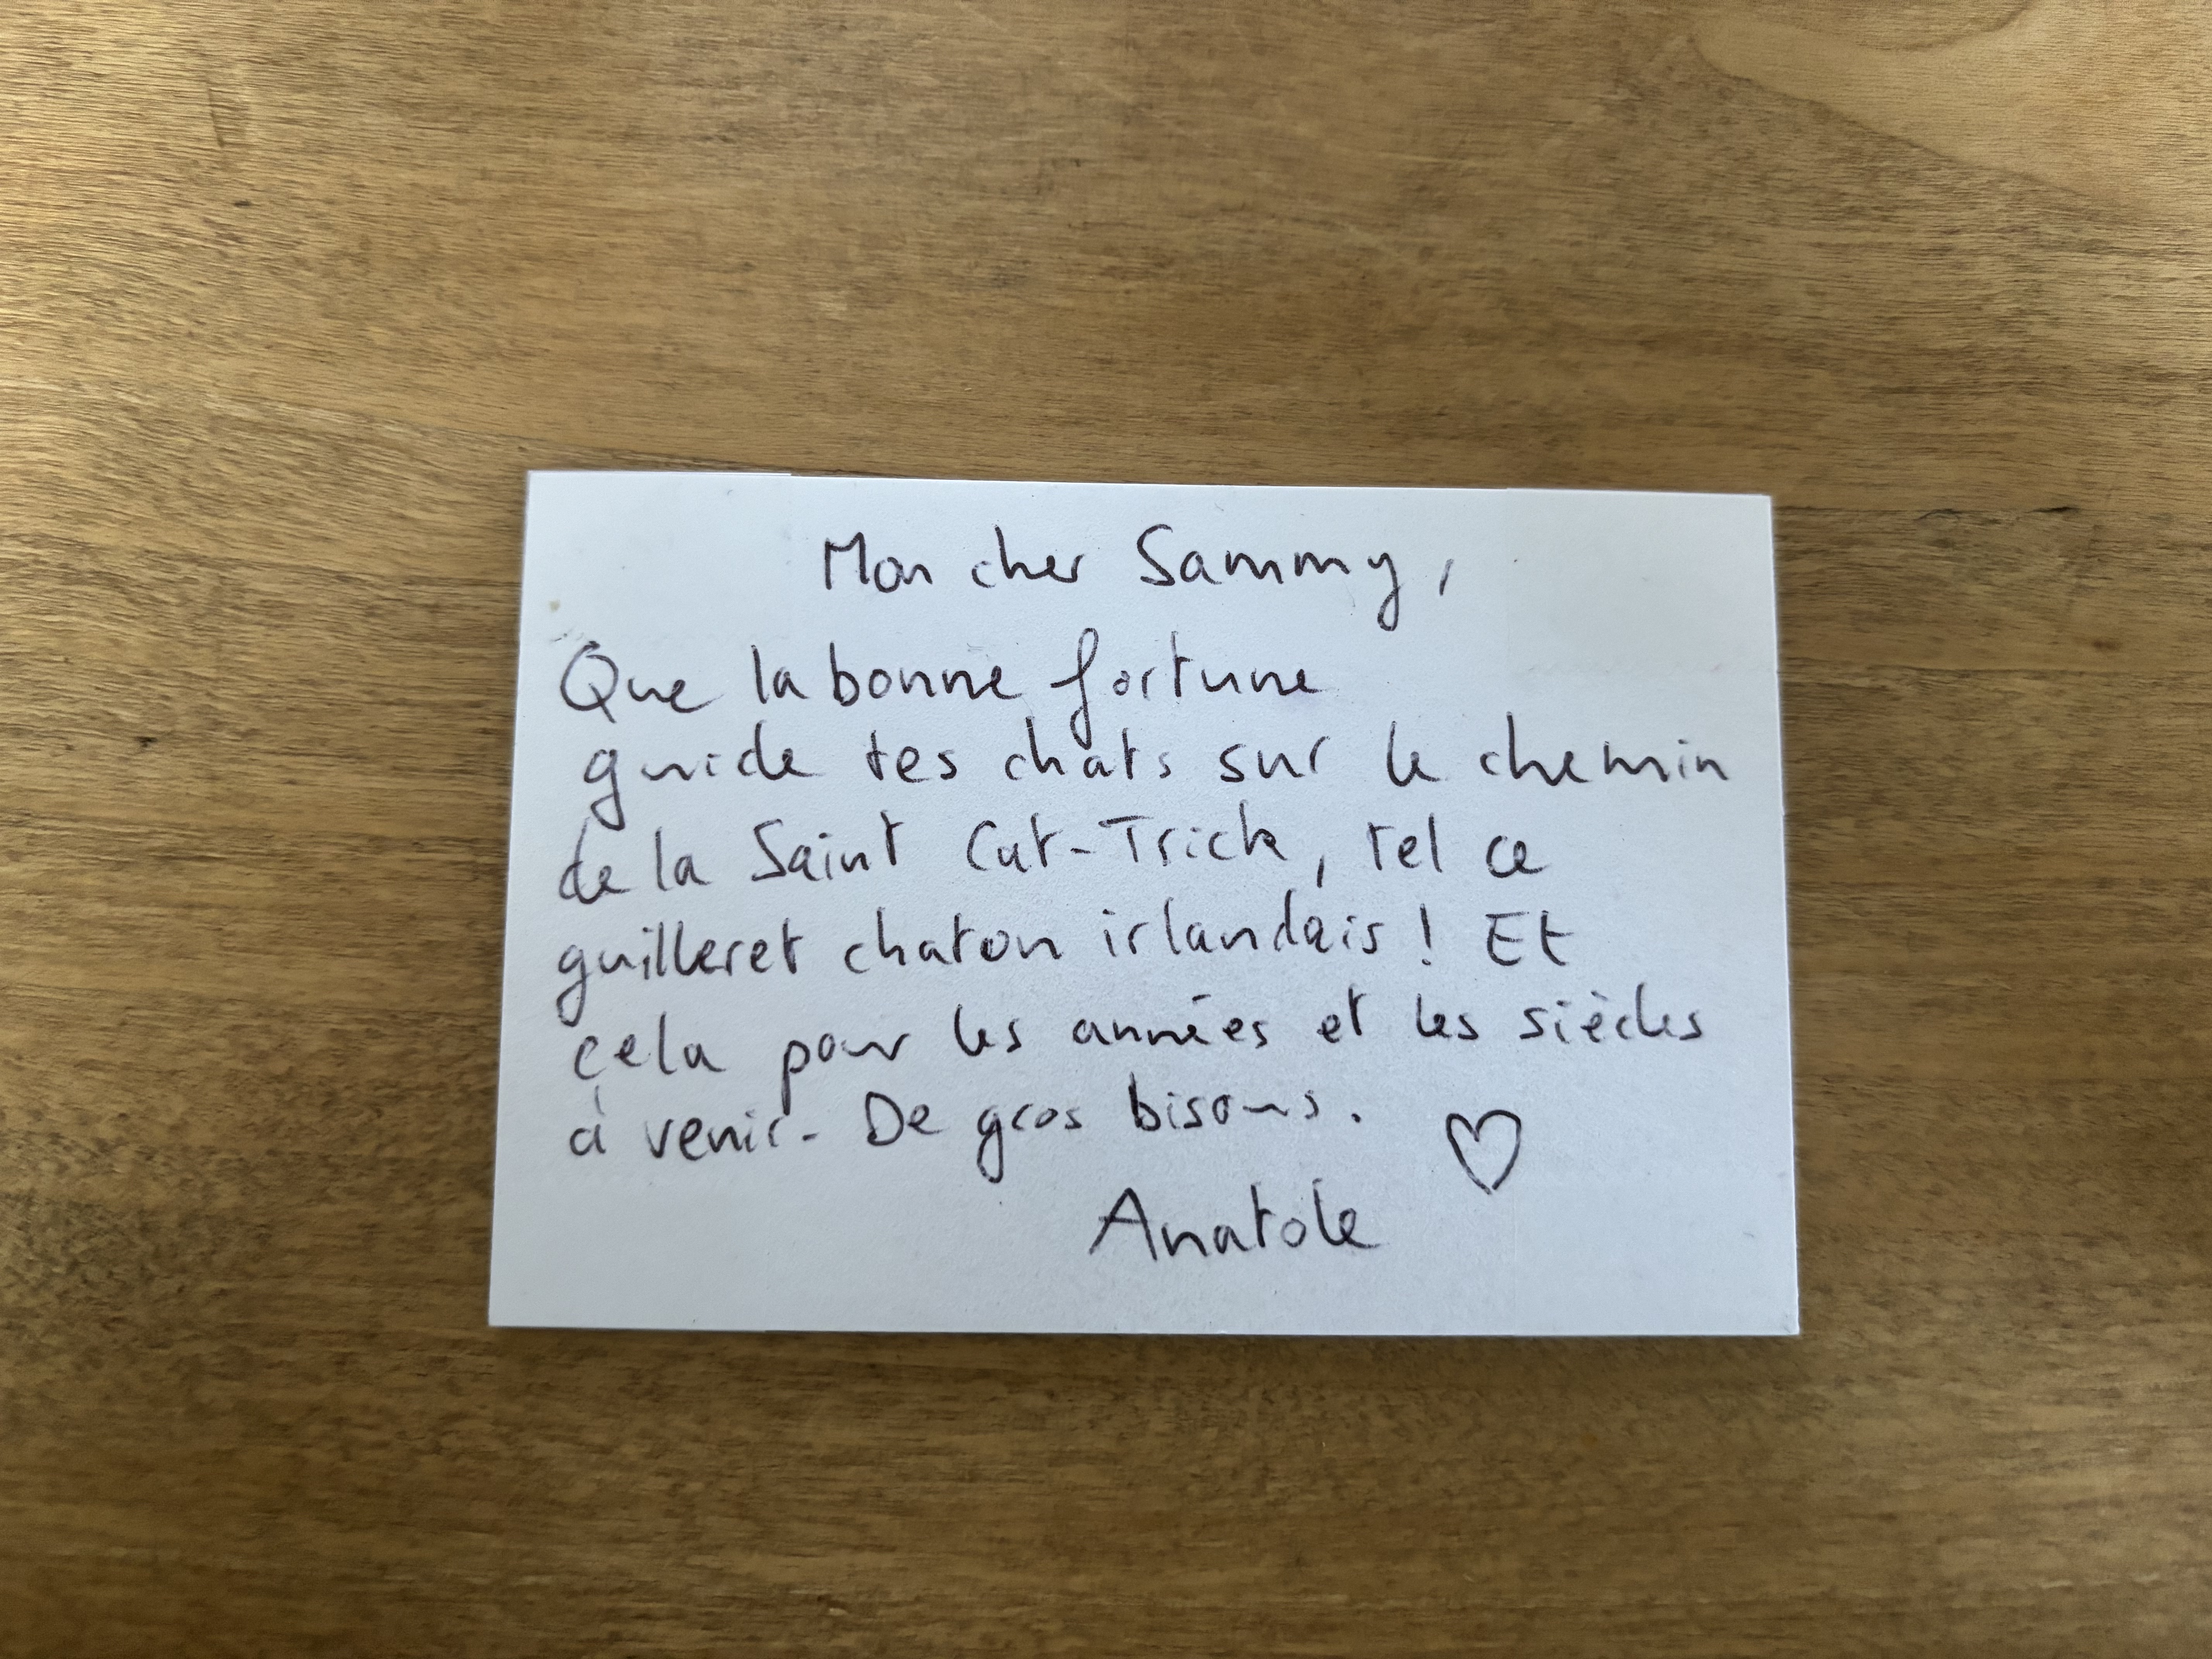 Mon cher Sammy,
Que la bonne fortune
guide tes chats sur le chemin
de la Saint Cat-Trick, tel ce
guilleret chaton irlandais ! Et
cela pour les années et les siècles
à venir. De gros bisous. ♡
Anatole